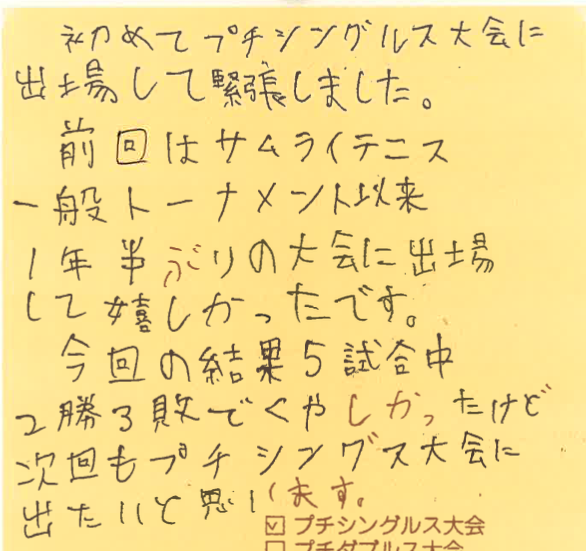 初めてプチシングルス大会に
出場して緊張しました。
前回はサムライテニス
一般トーナメント以来
1年半ぶりの大会に出場
して嬉しかったです。
今回の結果5試合中
2勝3敗でくやしかったけど
次回もプチシングス大会に
出たいと思います。
☑ プチシングルス大会
□ プチダブルス大会